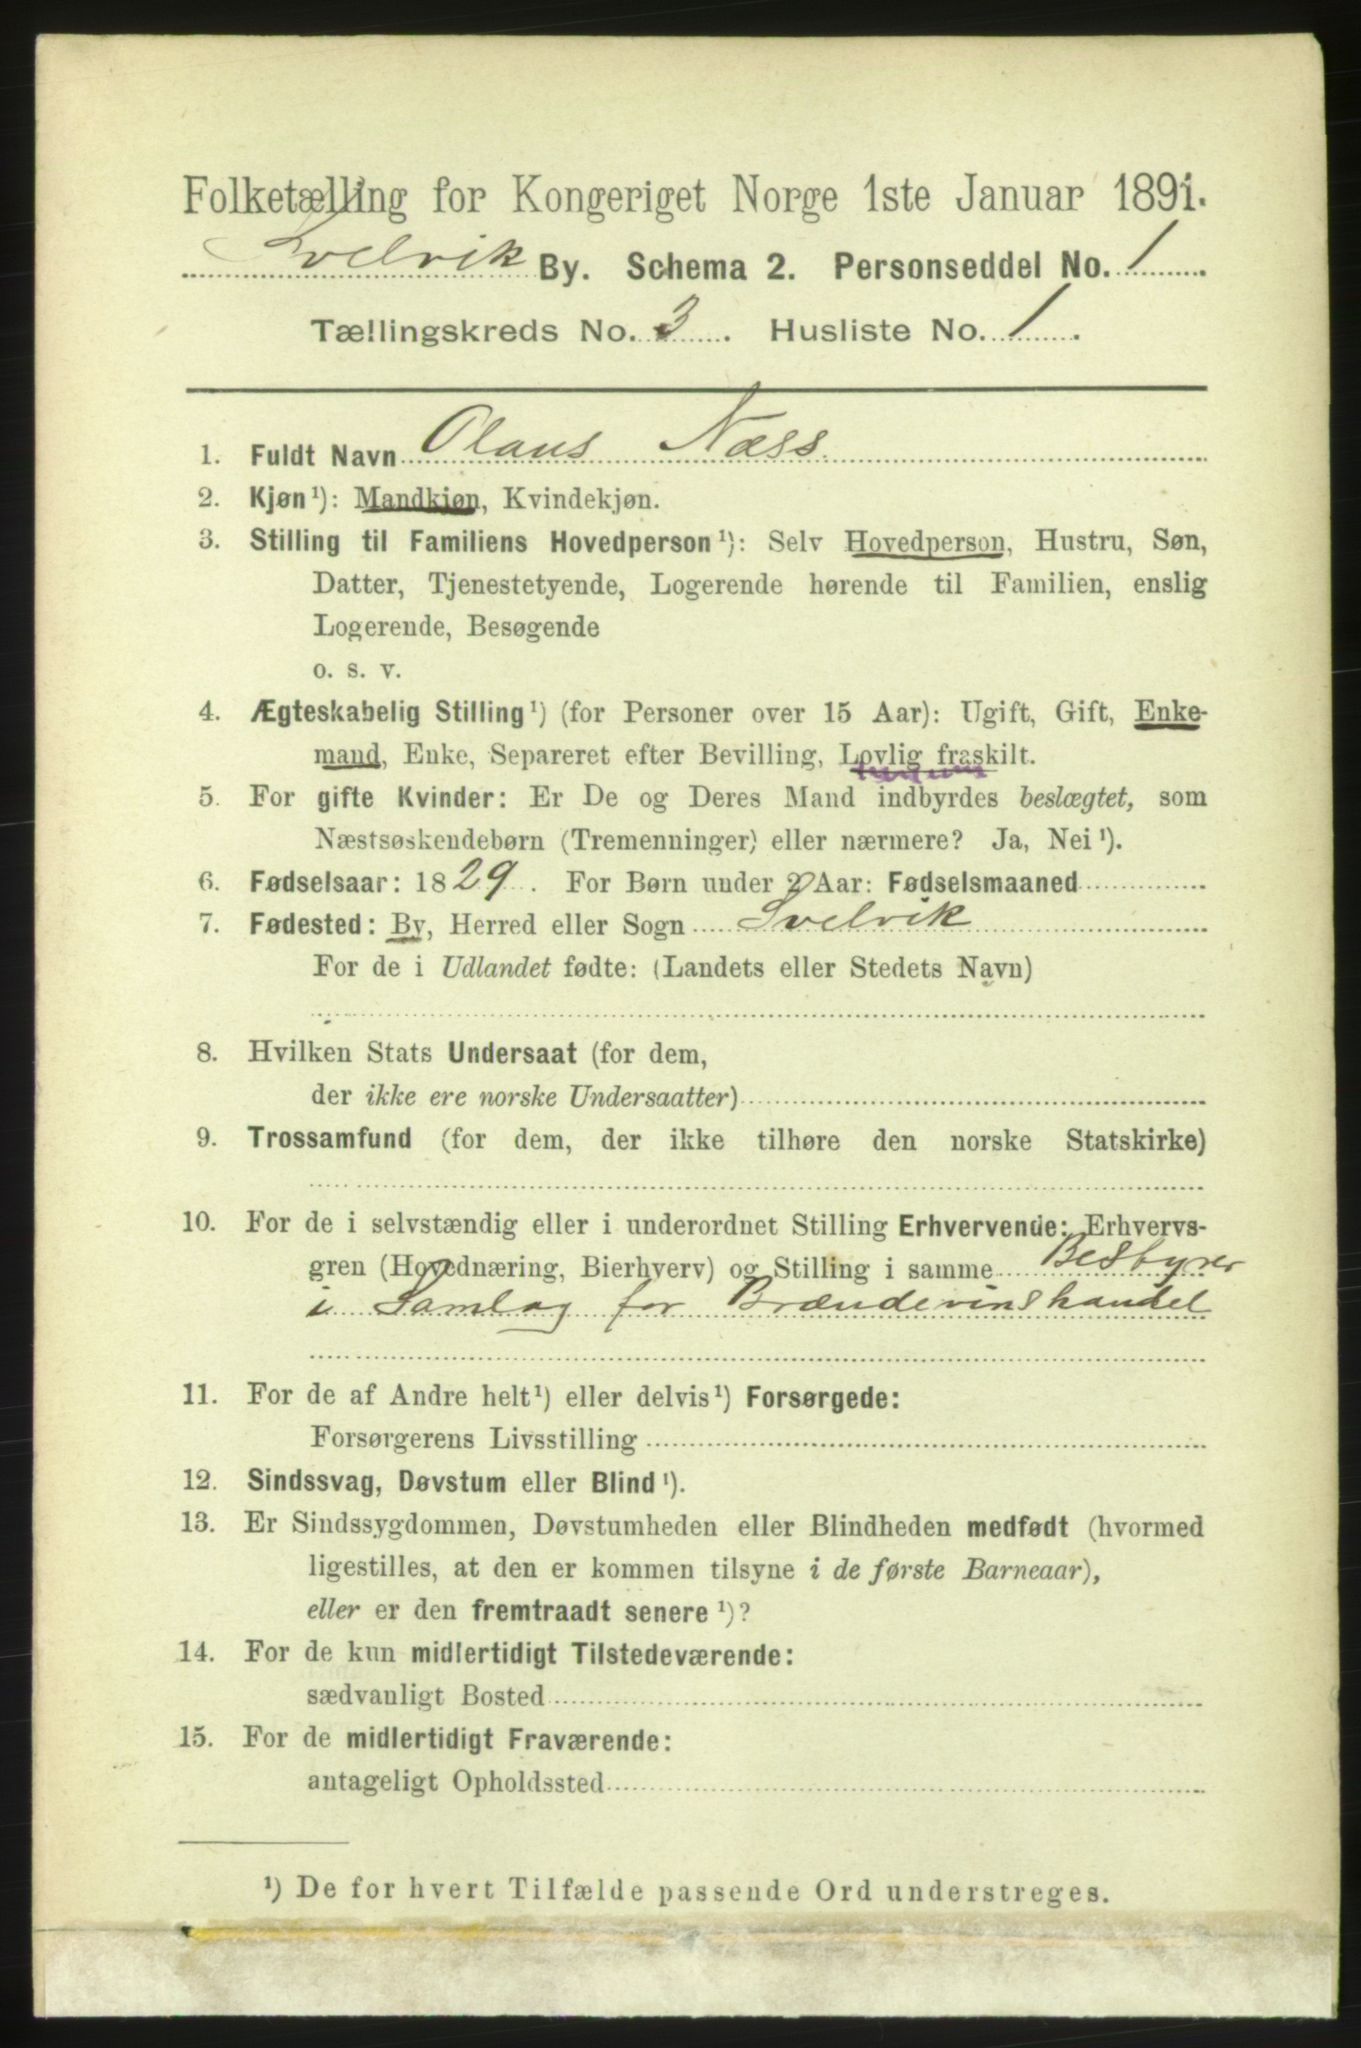 Folketælling for Kongeriget Norge 1ste Januar 1891.
Svelvik By. Schema 2. Personseddel No. 1
Tællingskreds No. 3. Husliste No. 1.
1. Fuldt Navn Olaus Næss
2. Kjøn¹): Mandkjøn, Kvindekjøn.
3. Stilling til Familiens Hovedperson¹): Selv Hovedperson, Hustru, Søn,
Datter, Tjenestetyende, Logerende hørende til Familien, enslig
Logerende, Besøgende
o. s. v.
4. Ægteskabelig Stilling¹) (for Personer over 15 Aar): Ugift, Gift, Enke-
mand, Enke, Separeret efter Bevilling, Lovlig fraskilt.
5. For gifte Kvinder: Er De og Deres Mand indbyrdes beslægtet, som
Næstsøskendebørn (Tremenninger) eller nærmere? Ja, Nei¹).
6. Fødselsaar: 1829. For Børn under 2 Aar: Fødselsmaaned
7. Fødested: By, Herred eller Sogn Svelvik
For de i Udlandet fødte: (Landets eller Stedets Navn)
8. Hvilken Stats Undersaat (for dem,
der ikke ere norske Undersaatter)
9. Trossamfund (for dem, der ikke tilhøre den norske Statskirke)
10. For de i selvstændig eller i underordnet Stilling Erhvervende: Erhvervs-
gren (Hovednæring, Bierhverv) og Stilling i samme Bestyrer
i Samlag for Brændevinshandel
11. For de af Andre helt¹) eller delvis¹) Forsørgede:
Forsørgerens Livsstilling
12. Sindssvag, Døvstum eller Blind¹).
13. Er Sindssygdommen, Døvstumheden eller Blindheden medfødt (hvormed
ligestilles, at den er kommen tilsyne i de første Barneaar),
eller er den fremtraadt senere¹)?
14. For de kun midlertidigt Tilstedeværende:
sædvanligt Bosted
15. For de midlertidigt Fraværende:
antageligt Opholdssted
¹) De for hvert Tilfælde passende Ord understreges.